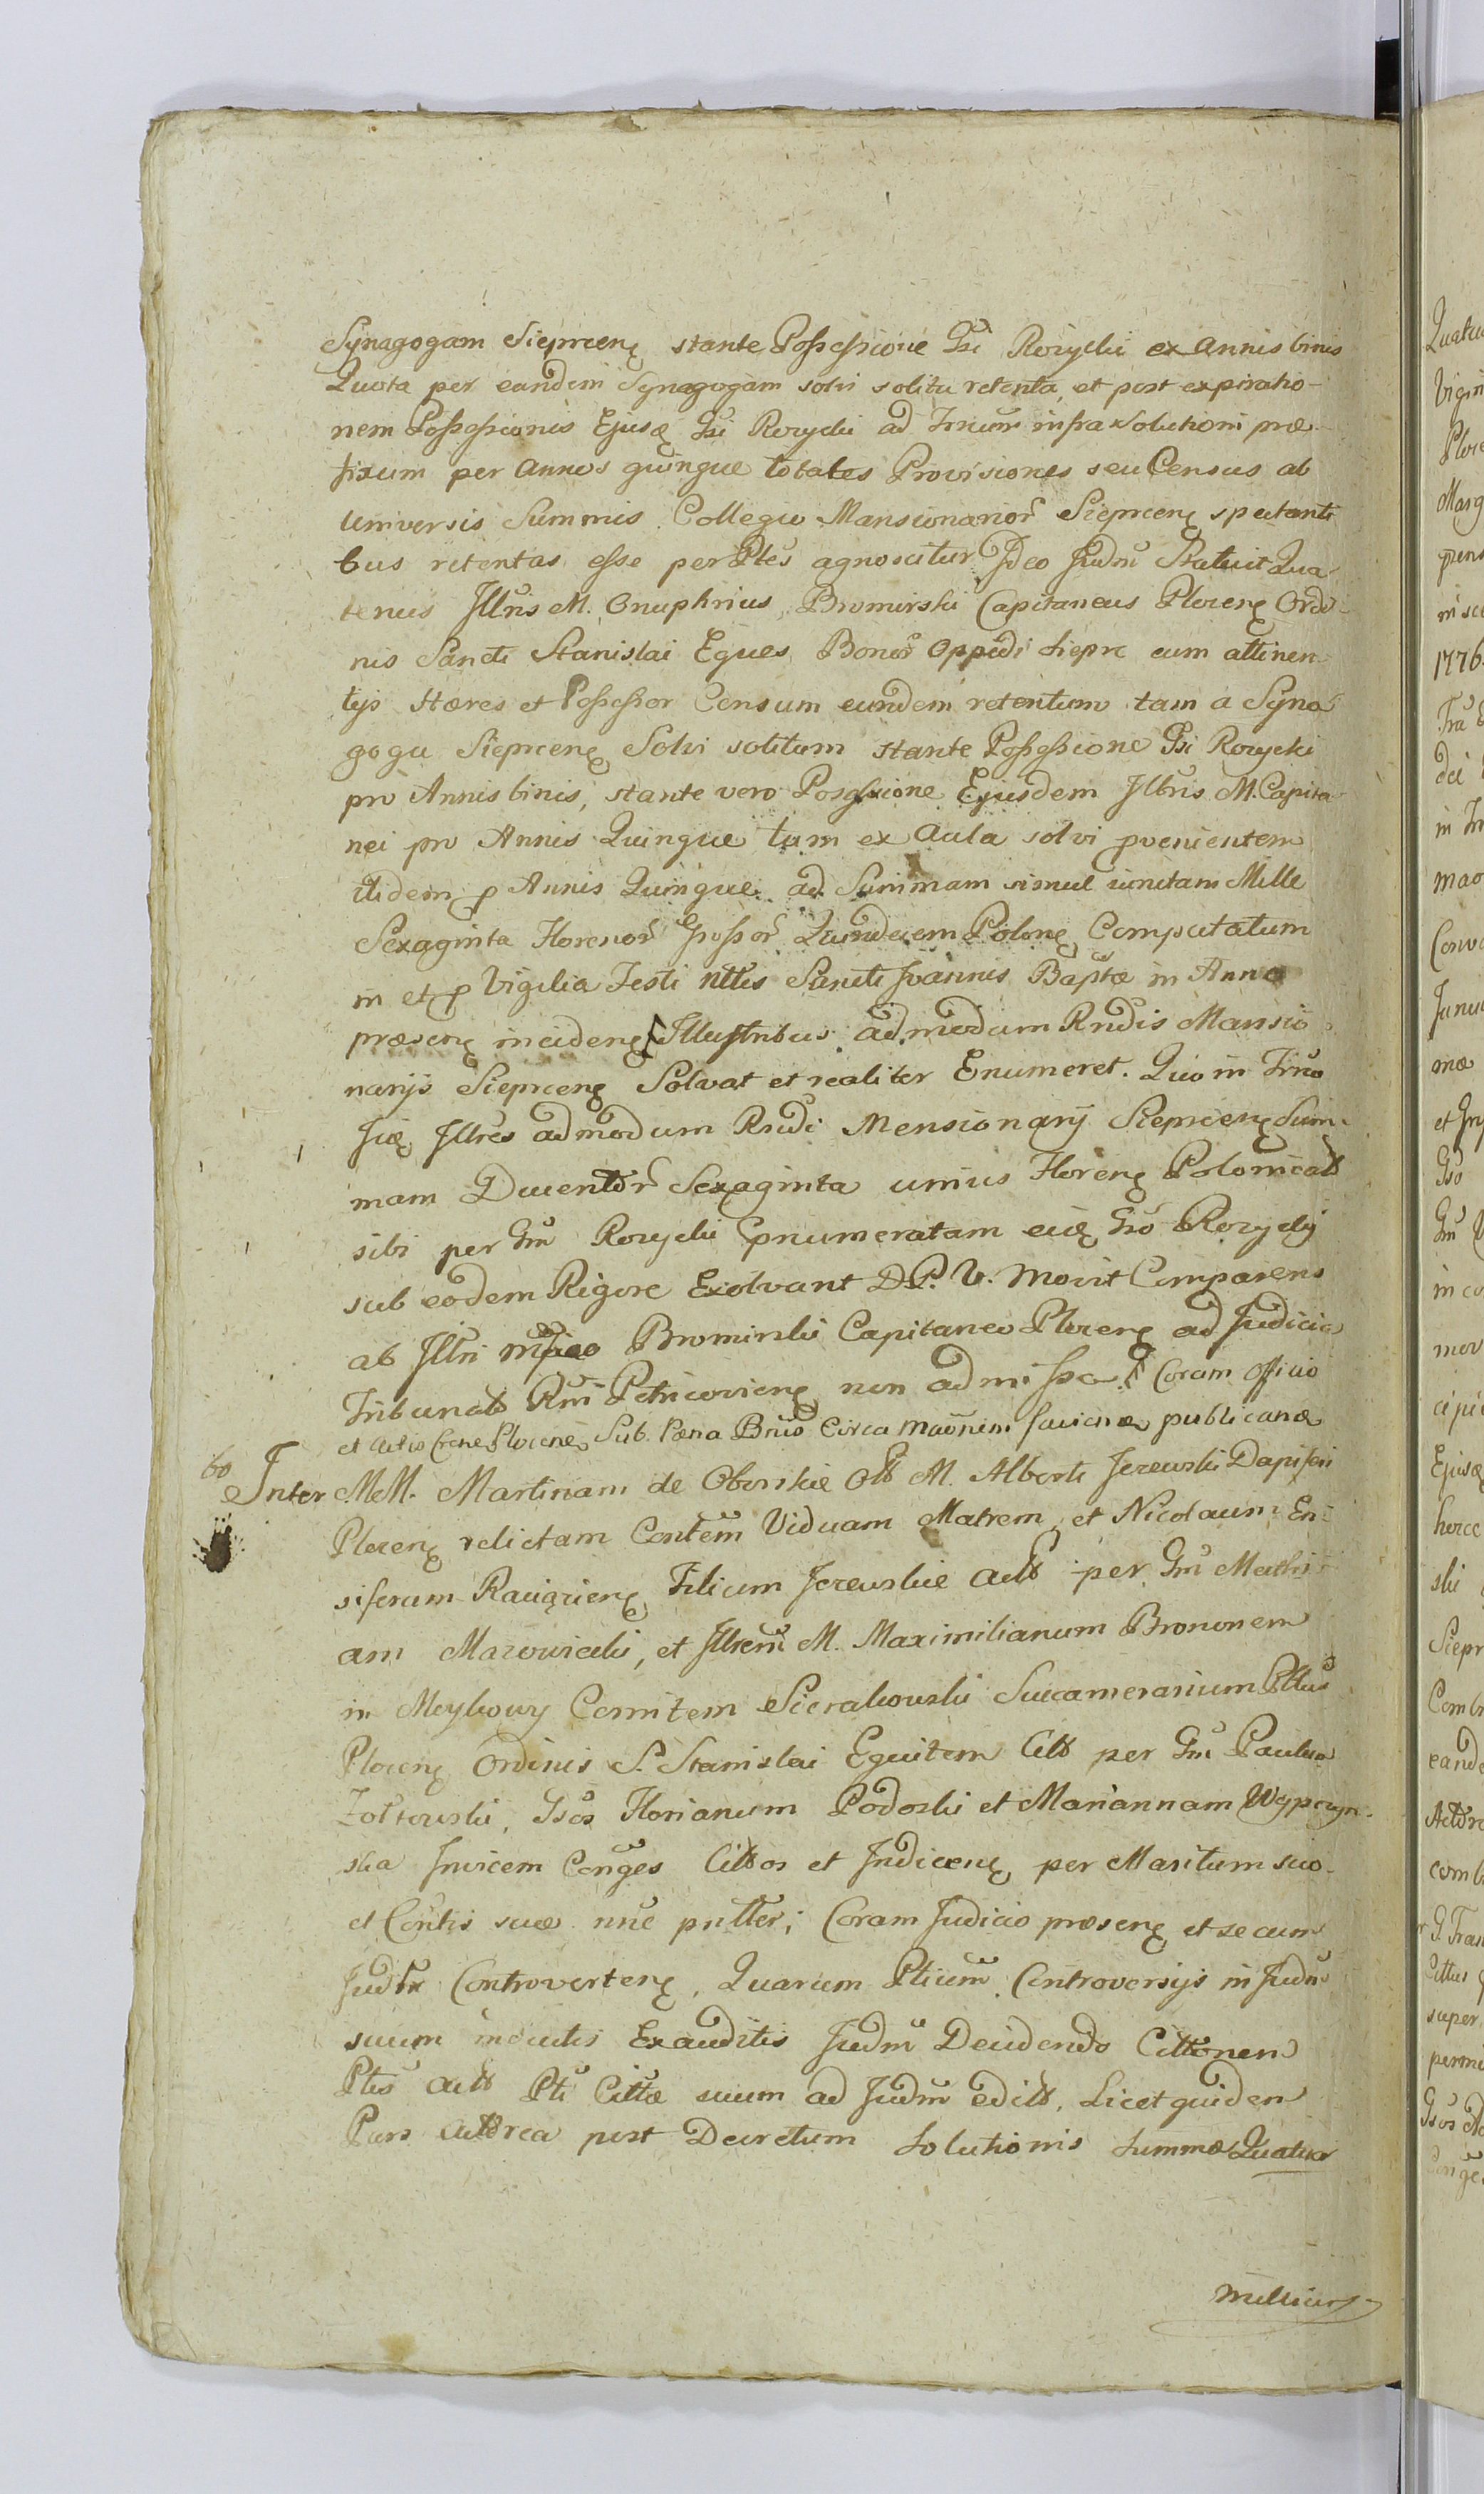 Synagogam Sieprcens stante Possessione Gsi Rozycki ex Annis binis
Quota per eandem Synagogam solvi solita retenta, et post expiratio-
nem Possessionis Ejusd Gsi Rozycki ad Trnum infra solutioni præ-
fixum per Annos quinque totales Provisiones seu Census ab
Universis Summis Collegio Mansionarior Siepcens spectanti
bus retentas esse per Ptes agnoscitur Ideo Judm Statuit Qua-
tenus Illris M. Onuphrius Bromirski Capitaneus Plocens Ordi-
nis Sancti Stanislai Eques Bonor Oppidi Sieprc cum attinen-
tijs Hæres et Possessor Censum eundem retentum tam a Syna-
goga Sieprcens Solvi solitum stante Possessione Gsi Rozycki
pro Annis binis, stante vero Possessione Ejusdem Illris M. Capita-
nei pro Annis Quinque tum ex Aula solvi pvenientem
itidem p Annis Quinque ad Summam simul unitam Mille
Sexaginta Florenor Grossor Quindecem Polons Computatum
in et p Vigilia Festi Nttis Sancti Joannis Baptæ in Anno
præsens incidens Illustribus admodum Rndis Mansio-
narijs Sieprcens Solvat et realiter Enumeret. Quo in Trno
Iid Illres admodum Rndi Mensionarij Sieprcens Sum-
mam Ducentor Sexaginta unius Florens Polonical
sibi per Gm Rozycki Enumeratam eid Gso Rozycki
sub eodem Rigore Exolvant D.P.V. Movit Comparens
ab Illri Mfico Bromirski Capitaneo Plocens ad Judicia
Tribunal Rni Petricoviens non admissa Coram Officio
et Actis Crens Plocens Sub Pæna Bnis Circa Maonem faciena publicana
60 Inter MM. Martinam de Oborskie Olt M. Alberti Jezewski Dapiferi
Plocens relictam Contem Viduam Matrem, et Nicolaum En-
siferum Raciązens Filium Jezewskie Actt per Gm Mathi-
am Mazowiecki, et Illrem M. Maximilianum Brononem
in Meykowy Comitem Sierakowski Succamerarium Pttus
Plocens Ordinis S. Stanislai Equitem Citt per Gm Paulum
Zołtowski, Gsos Florianum Podoski et Mariannam Wypczyn-
ska Invicem Conges Cittos et Indicens per Maritum suo-
et Contis suæ nne putter; Coram Judicio præsens et secum
Judtr Controvertens, Quarum Ptium Controversijs in Judm
suum inductis Exauditis Judm Decidendo Cittonem
Ptis Actt Pti Cittæ suum ad Judm edict, Licet quidem
Pars Actorea post Decretum Solutionis Summæ Quatuor
millium